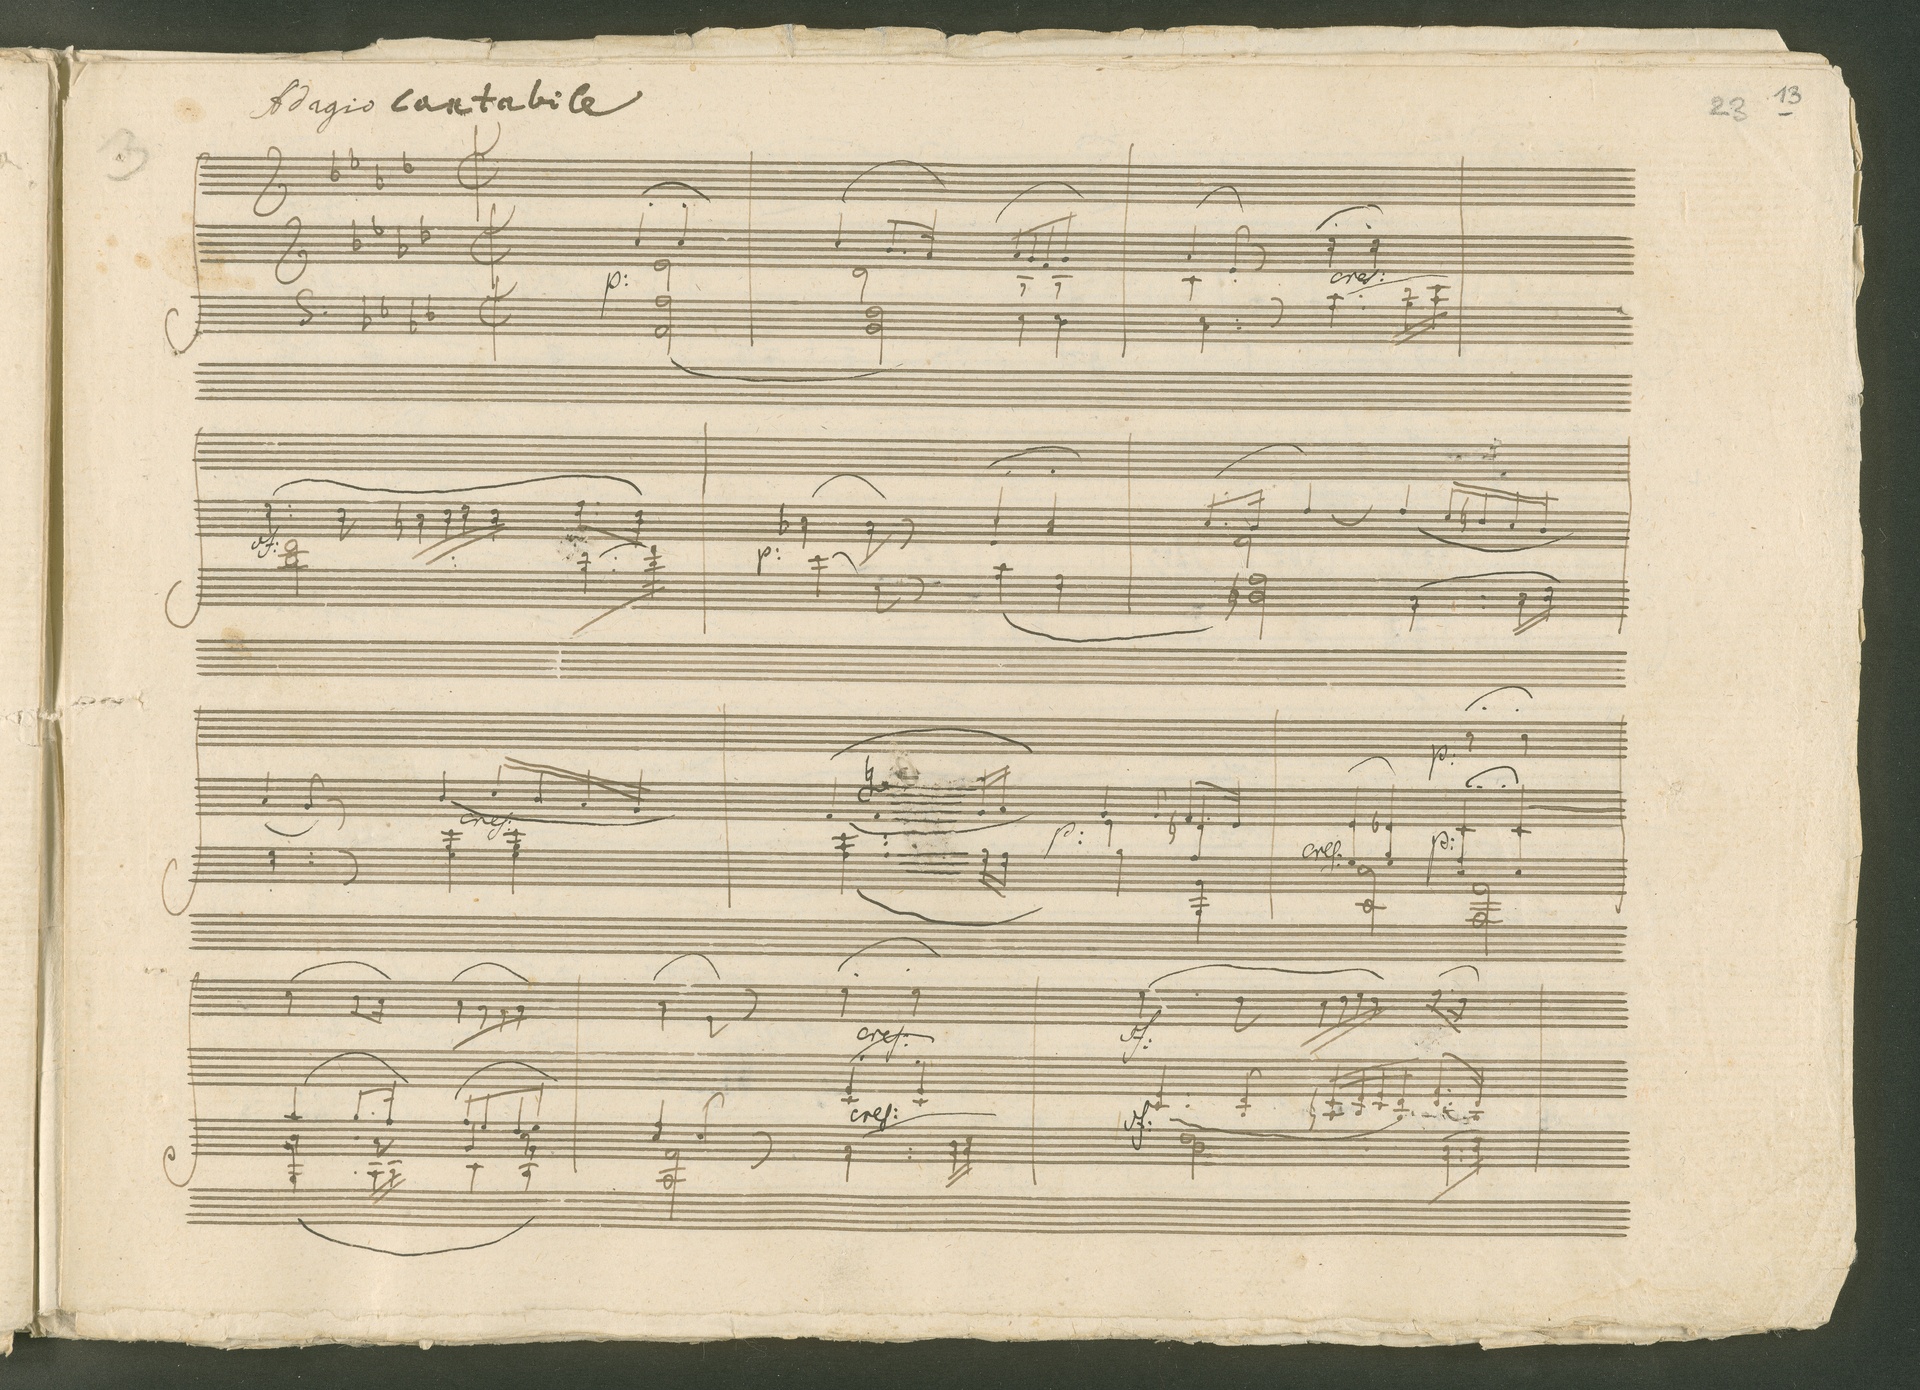 Adagio cantabile
23 13
3
p:
cres:
sf:
p:
cres:
p:
p:
cres:
p:
cres:
sf:
cres:
sf: